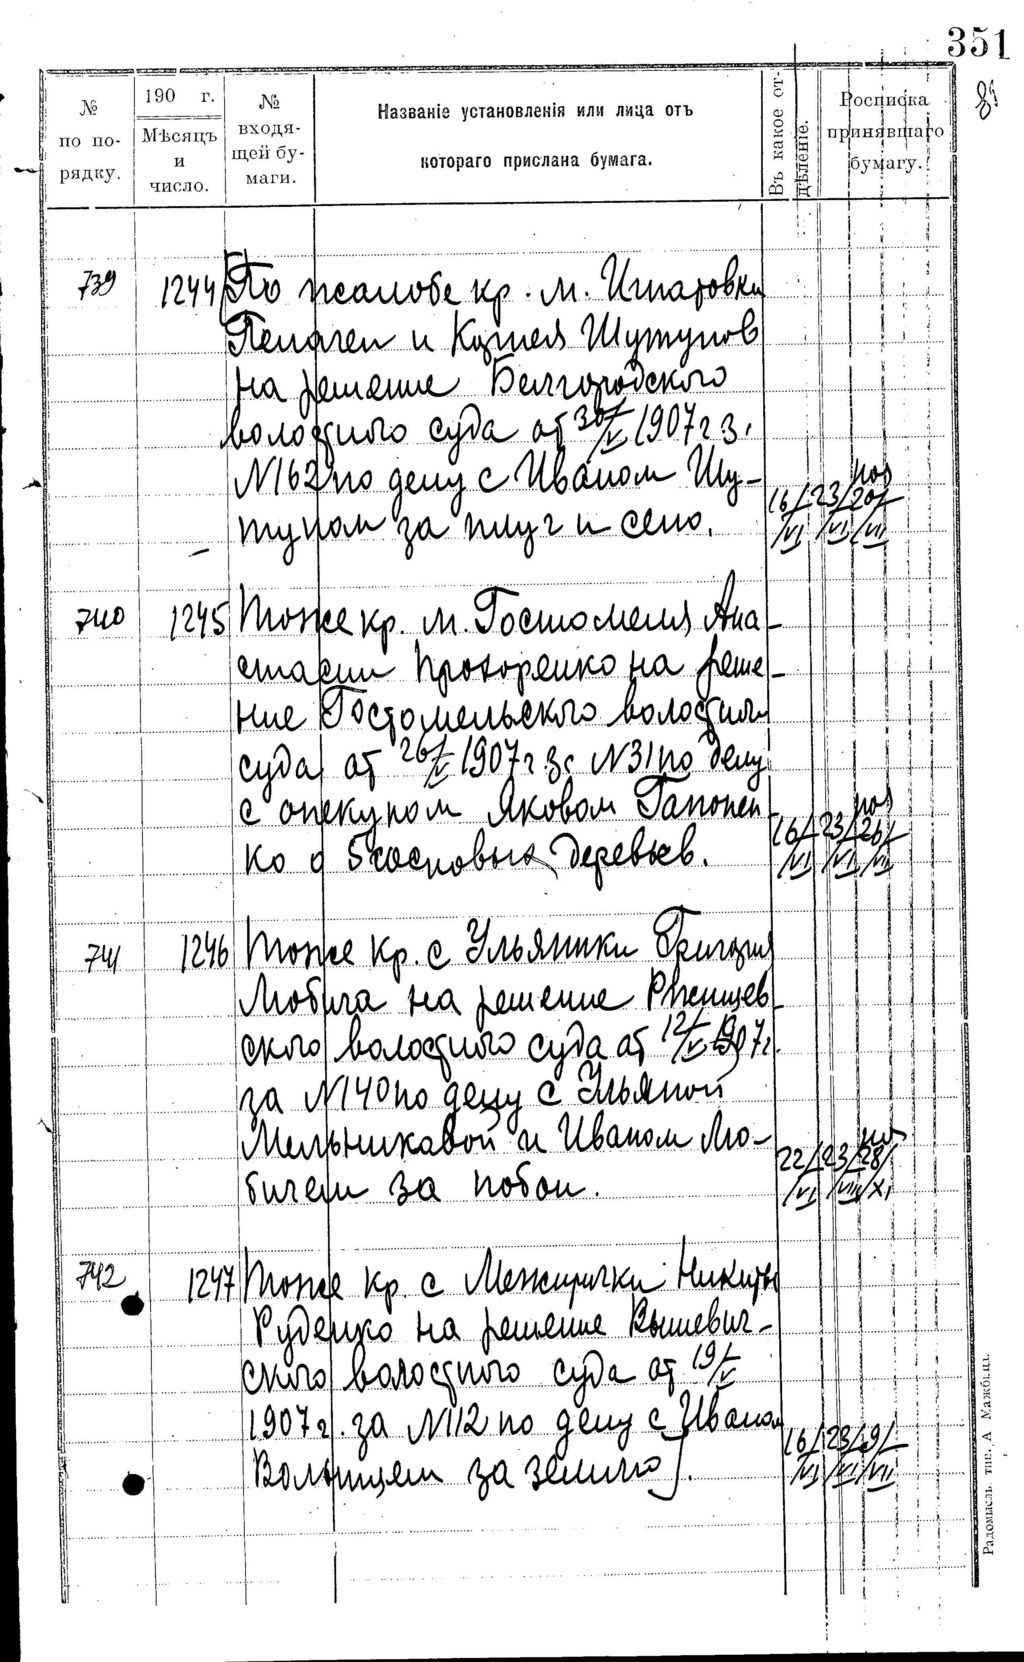 351
№ по порядку.
190 г. Мѣсяцъ и число.
№ входящей бумаги.
Названіе установленія или лица отъ
котораго прислана бумага.
Въ какое отдѣленіе.
Росписка принявшаго бумагу.
739 1244 По жалобе кр. м. Игнатовки
Пелагеи и Шутунов
на решение Белгородского
волостного суда от 30/V 1907 г з.
N 162 по делу с Иваном Шу-
туном за плуг и сено. 16/VI 23/VI 20/VII
740 1245 Тоже кр. м. Гостомеля Ана-
стасии Прохоренко на реше-
ние Гостомельского волостного
суда от 26/V 1907 г. за N 31 по делу
с опекуном Яковом Гапонен-
ко о 5 сосновых деревьев. 16/VI 23/VI 20/VII
741 1246 Тоже кр. с Ульяники Григория
Любича на решение Ржищев-
ского волостного суда от 12/V 1907 г.
за N 140 по делу с Ульяной
Мельниковой и Иваном Лю-
бичем за побои. 22/VI 23/VIII 28/XI
742 1247 Тоже кр. с Межирички Никиты
Руденко на решение Вышевич-
ского волостного суда от 19/V
1907 г. за N 112 по делу с Иваном
Волынцем за землю. 16/VI 23/VI 9/VII
Радомысль. тип. А Мажбицъ.